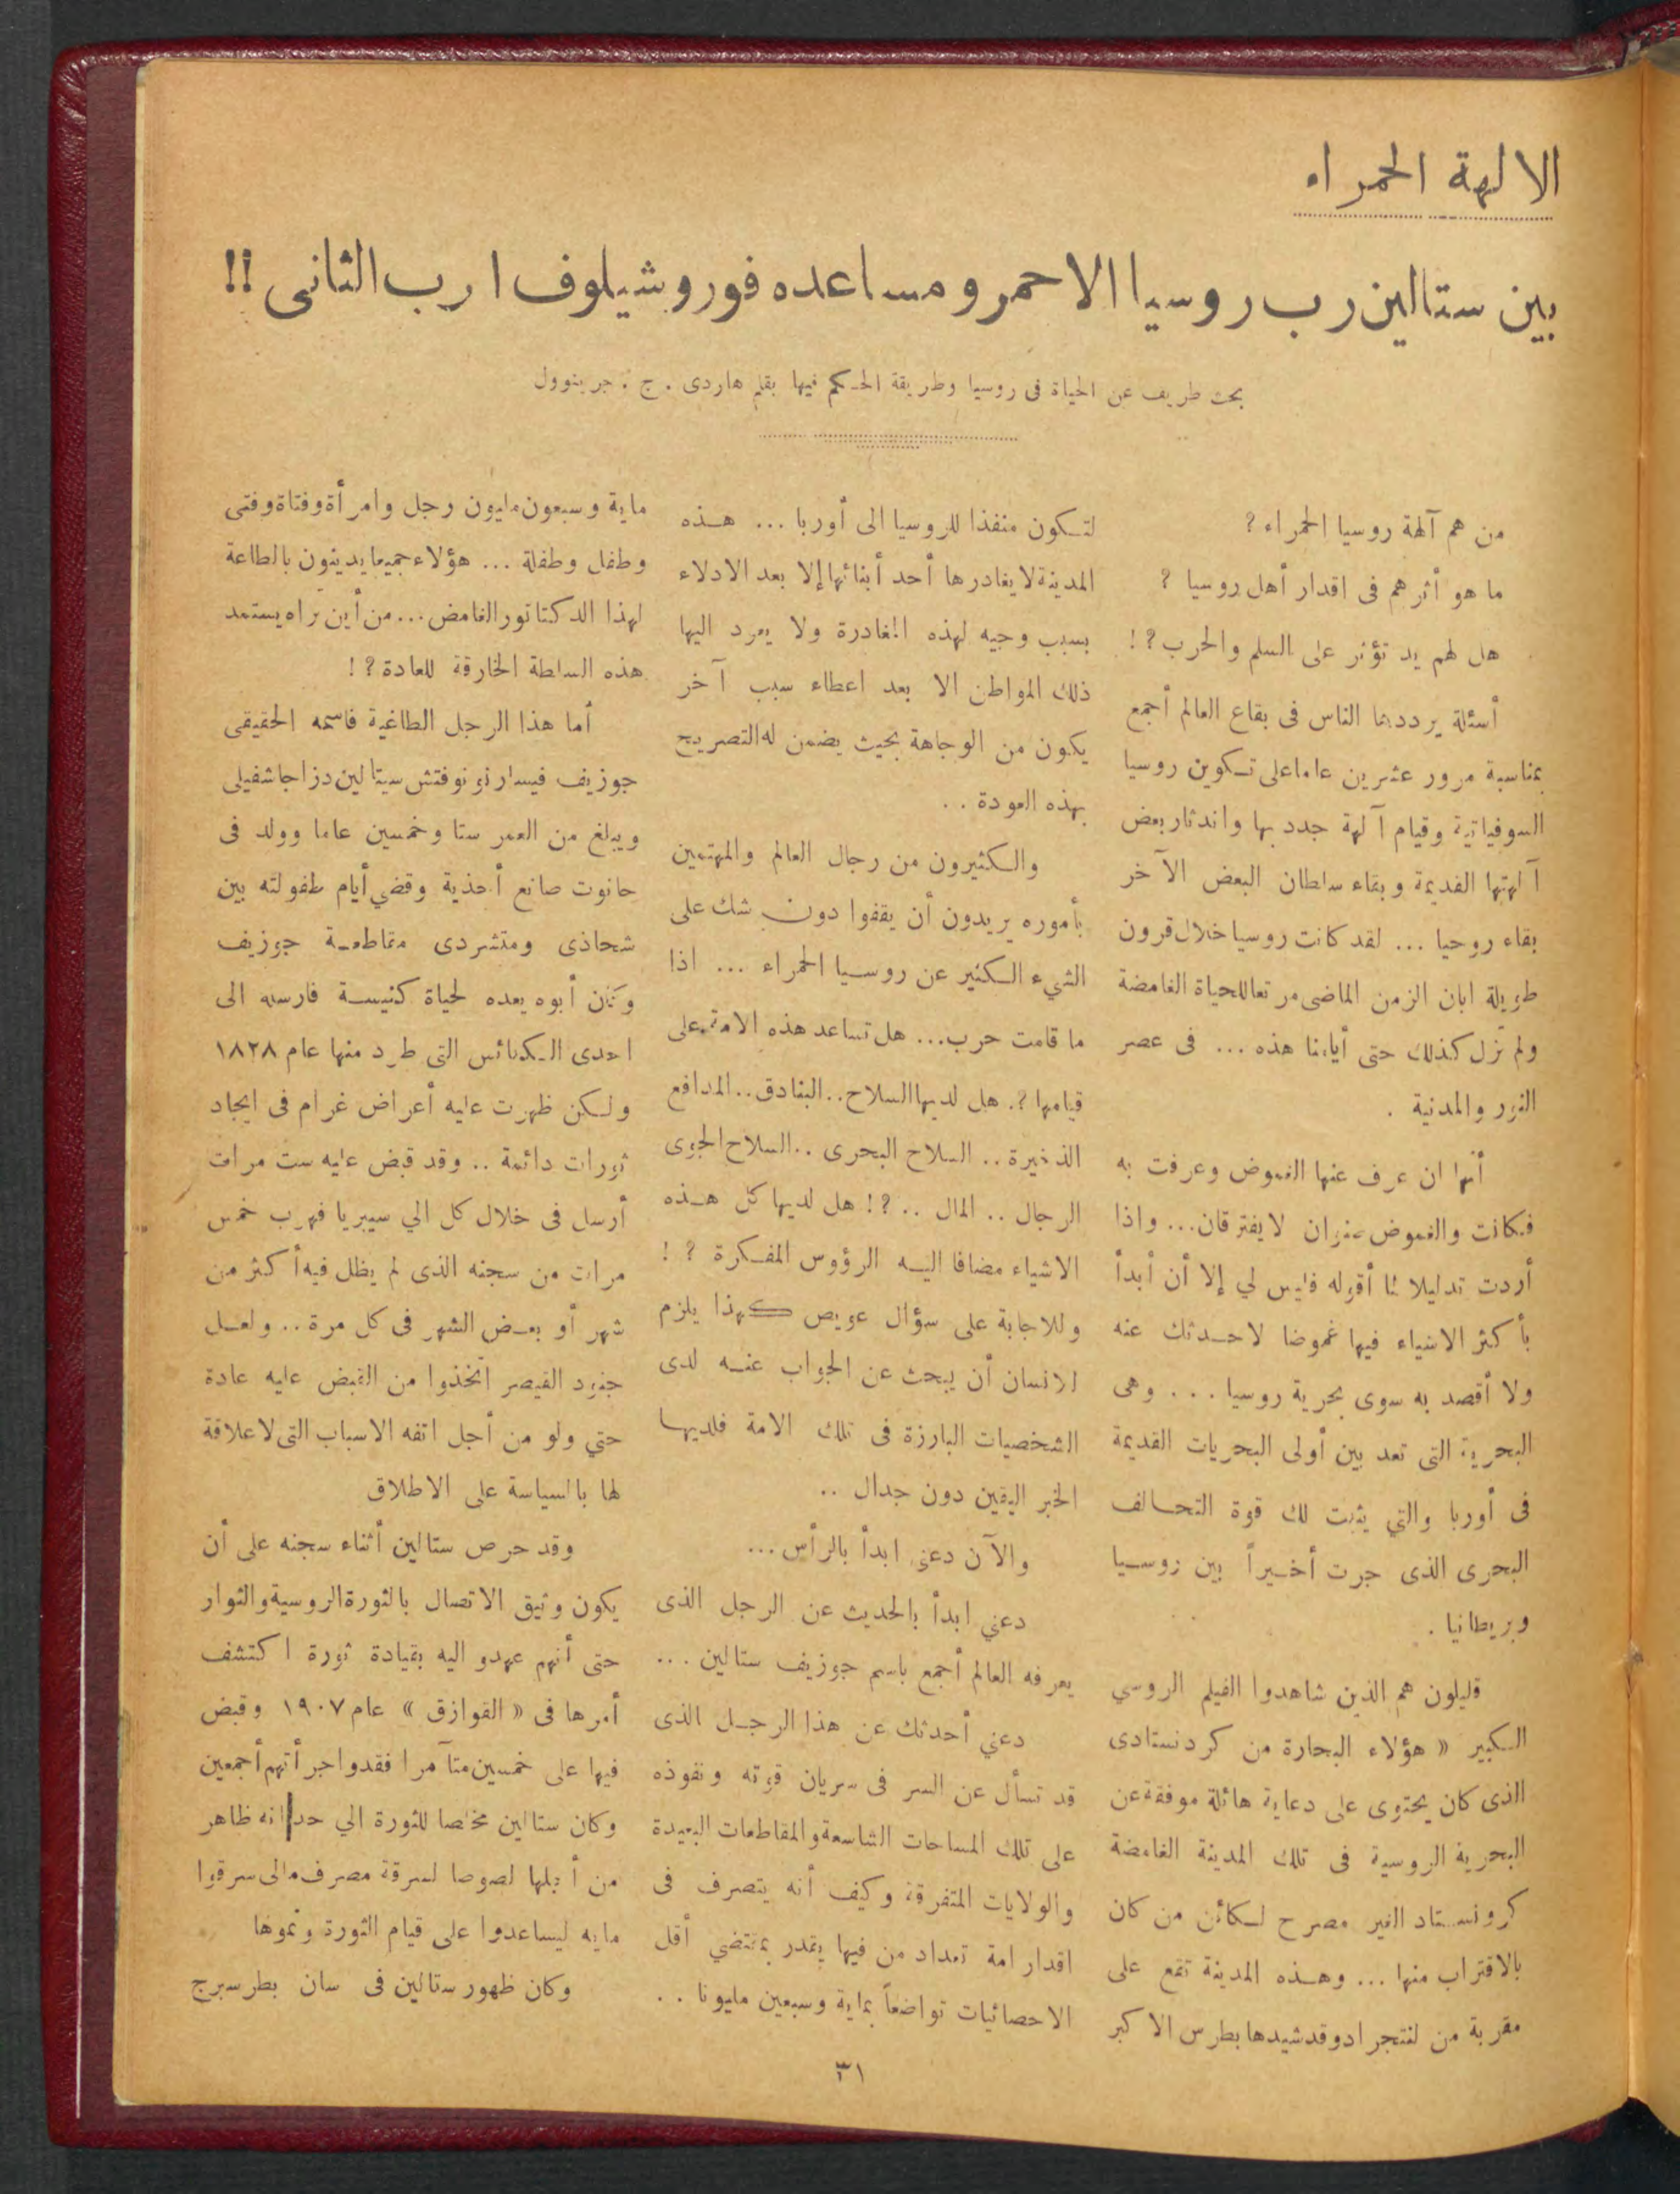 الالهة الحمراء
بين ستالين رب روسيا الاحمر ومساعده فوروشيلوف ا رب الثانى !!
بحث طريف عن الحياة فى روسيا وطريقة الحكم فيها بقلم هاردى . ج . جرينوول
من هم آلهة روسيا الحمراء ؟
ما هو أثرهم فى اقدار أهل روسيا ؟
هل لهم يد تؤثر على السلم والحرب ؟ !
أسئلة يرددها الناس فى بقاع العالم أجمع
بمناسبة مرور عشرين عاما على تكوين روسيا
السوفياتية وقيام آلهة جدد بها واندثار بعض
آلهتها القديمة وبقاء سلطان البعض الآخر
بقاء روحيا ... لقد كانت روسيا خلال قرون
طويلة ابان الزمن الماضى مرتعا للحياة الغامضة
ولم تزل كذلك حتى أيامنا هذه ... فى عصر
النور والمدنية .
أنها ان عرف عنها الغموض وعرفت به
فكانت والغموض صنوان لا يفترقان ... واذا
أردت تدليلا لما أقوله فليس لي إلا أن أبدأ
بأكثر الاشياء فيها غموضا لاحدثك عنه
ولا أقصد به سوى بحرية روسيا ... وهى
البحرية التى تعد بين أولى البحريات القديمة
فى أوربا والتي يثبت لك قوة التحالف
البحرى الذى جرت أخيراً بين روسيا
وبريطانيا .
قليلون هم الذين شاهدوا الفيلم الروسي
الكبير « هؤلاء البحارة من كردنستادى
الذى كان يحتوى على دعاية هائلة موفقة عن
البحرية الروسية فى تلك المدينة الغامضة
كرونستاد الغير مصرح لكائن من كان
بالاقتراب منها ... وهذه المدينة تقع على
مقربة من لننجراد وقد شيدها بطرس الاكبر
لتكون منفذا للروسيا الى أوربا ... هذه
المدينة لا يغادرها أحد أبنائها إلا بعد الادلاء
بسبب وجيه لهذه المغادرة ولا يعود اليها
ذلك المواطن الا بعد اعطاء سبب آخر
يكون من الوجاهة بحيث يضمن له التصريح
بهذه العودة ..
والكثيرون من رجال العالم والمهتمين
بأموره يريدون أن يقفوا دون شك على
الشيء الكثير عن روسيا الحمراء ... اذا
ما قامت حرب ... هل تساعد هذه الامة على
قيامها ؟. هل لديها السلاح .. البنادق .. المدافع
الذخيرة .. السلاح البحرى .. السلاح الجوى
الرجال .. المال .. ؟ ! هل لديها كل هذه
الاشياء مضافا اليه الرؤوس المفكرة ؟ !
وللاجابة على سؤال عويص كهذا يلزم
الانسان أن يبحث عن الجواب عنه لدى
الشخصيات البارزة فى تلك الامة فلديها
الخبر اليقين دون جدال ..
والآن دعنى ابدأ بالرأس ...
دعني ابدأ بالحديث عن الرجل الذى
يعرفه العالم أجمع باسم جوزيف ستالين ...
دعني أحدثك عن هذا الرجل الذى
قد تسأل عن السر فى سريان قوته ونفوذه
على تلك المساحات الشاسعة والمقاطعات البعيدة
والولايات المتفرقة وكيف أنه يتصرف فى
اقدار امة تعداد من فيها يقدر بمقتضي أقل
الاحصائيات تواضعاً بماية وسبعين مليونا ..
ماية وسبعون مليون رجل وامرأة وفتاة وفتى
وطفل وطفلة ... هؤلاء جميعا يدينون بالطاعة
لهذا الدكتاتور الغامض ... من أين تراه يستمد
هذه السلطة الخارقة للعادة ؟ !
أما هذا الرجل الطاغية فاسمه الحقيقى
جوزيف فيسارنونوفتش ستالين دزاجاشفيلى
ويبلغ من العمر ستا وخمسين عاما وولد فى
حانوت صانع أحذية وقضي أيام طفولته بين
شحاذى ومتشردى مقاطعة جوزيف
وكان أبوه يعده لحياة كنيسة فارسله الى
احدى الكنائس التى طرد منها عام ١٨٢٨
ولكن ظهرت عليه أعراض غرام فى ايجاد
ثورات دائمة .. وقد قبض عليه ست مرات
أرسل فى خلال كل الي سيبريا فهرب خمس
مرات من سجنه الذى لم يظل فيه أكثر من
شهر أو بعض الشهر فى كل مرة .. ولعل
جنود القيصر اتخذوا من القبض عليه عادة
حتي ولو من أجل اتفه الاسباب التى لا علاقة
لها بالسياسة على الاطلاق
وقد حرص ستالين أثناء سجنه على أن
يكون وثيق الاتصال بالثورة الروسية والثوار
حتى أنهم عهدو اليه بقيادة ثورة اكتشف
أمرها فى « القوازق » عام ١٩٠٧ وقبض
فيها على خمسين متآمرا فقدوا جرأتهم أجمعين
وكان ستالين مخلصا للثورة الي حد انه ظاهر
من أجلها لصوصا لسرقة مصرف مالى سرقوا
مايه ليساعدوا على قيام الثورة ونموها
وكان ظهور ستالين فى سان بطرسبرج
٣١